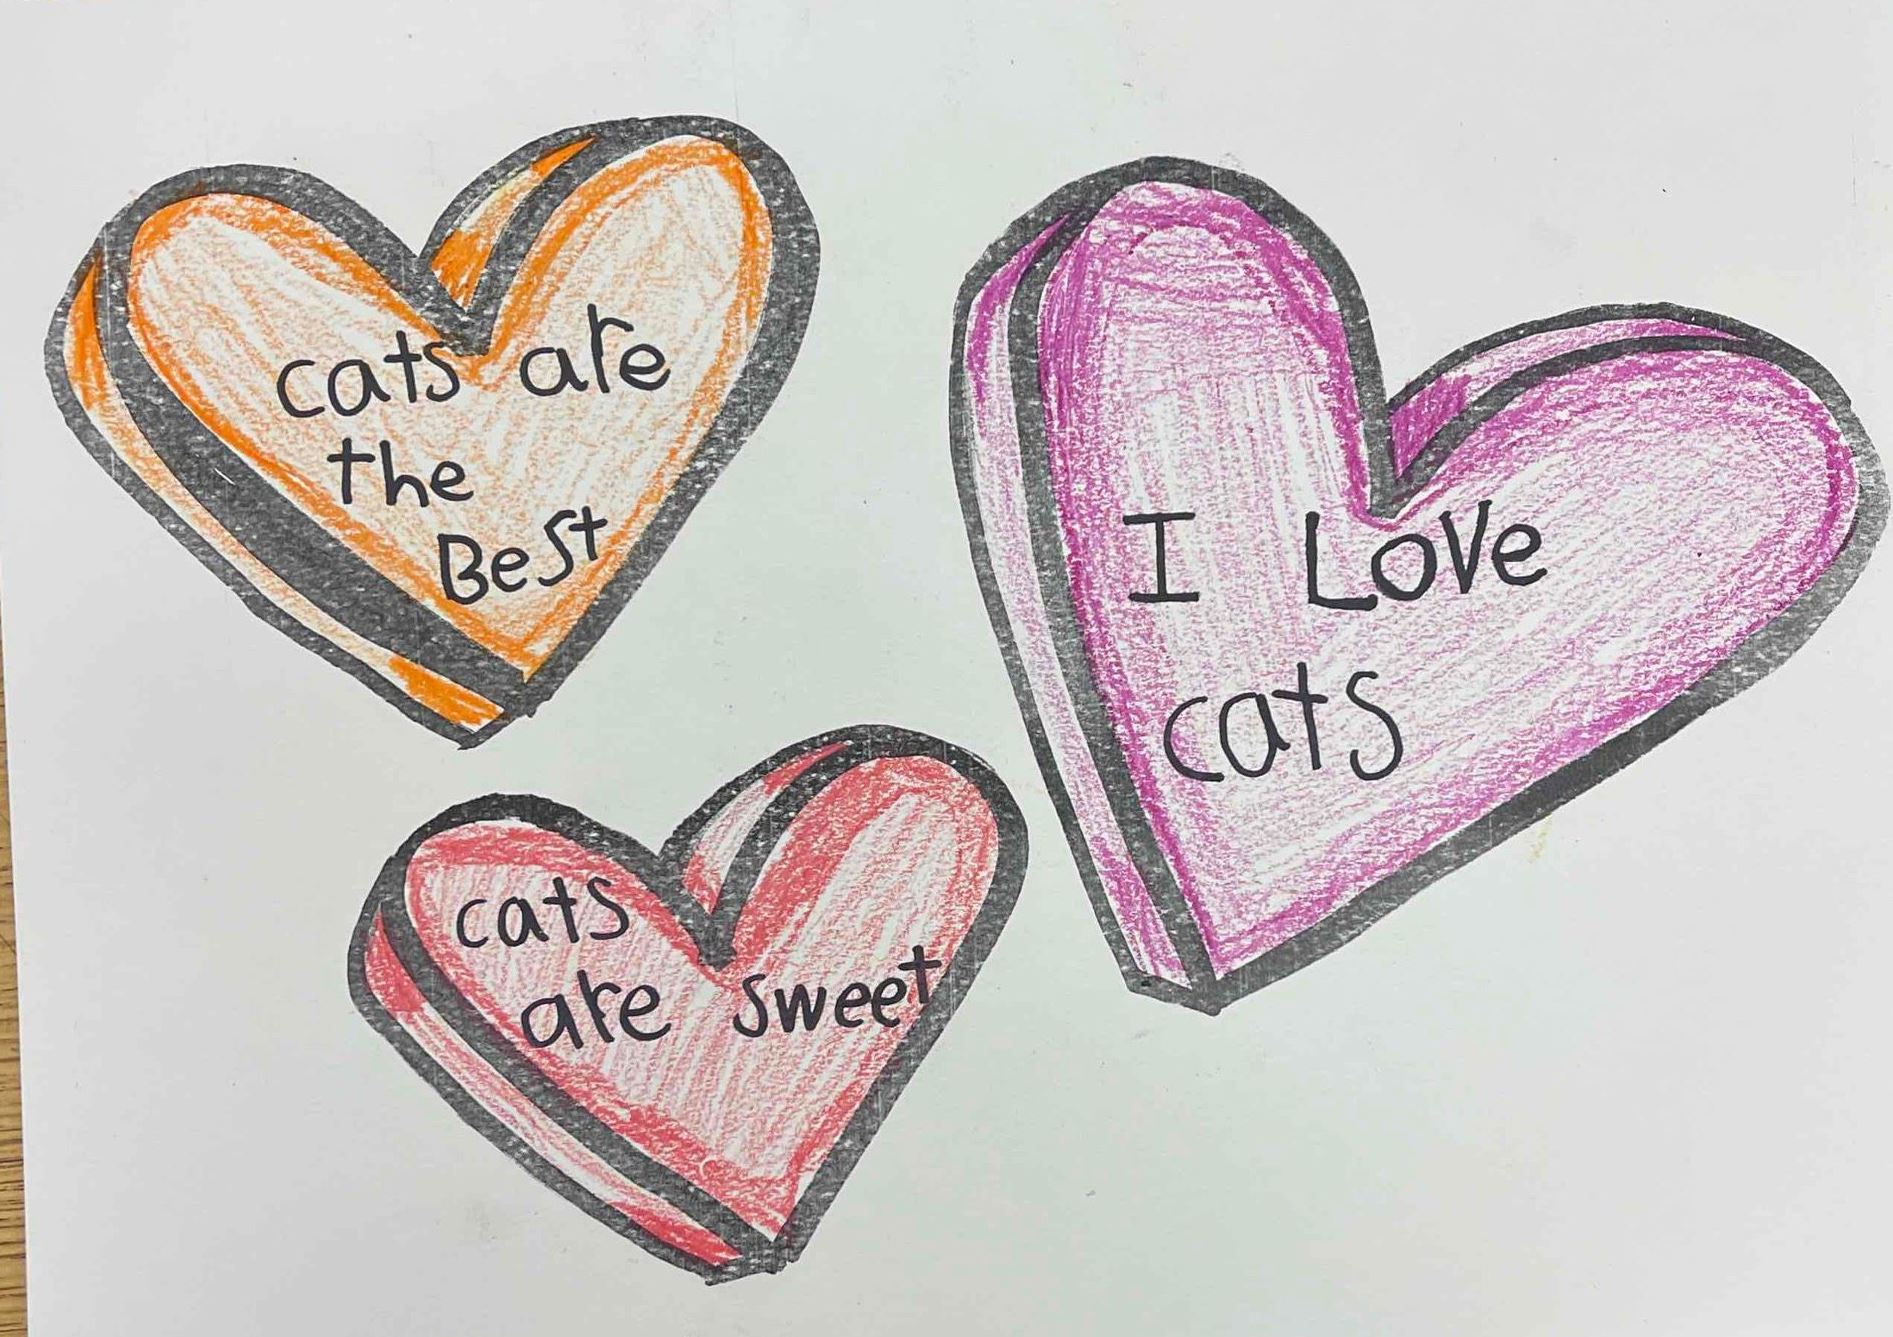 cats are
the
Best
I Love
cats
cats
are sweet